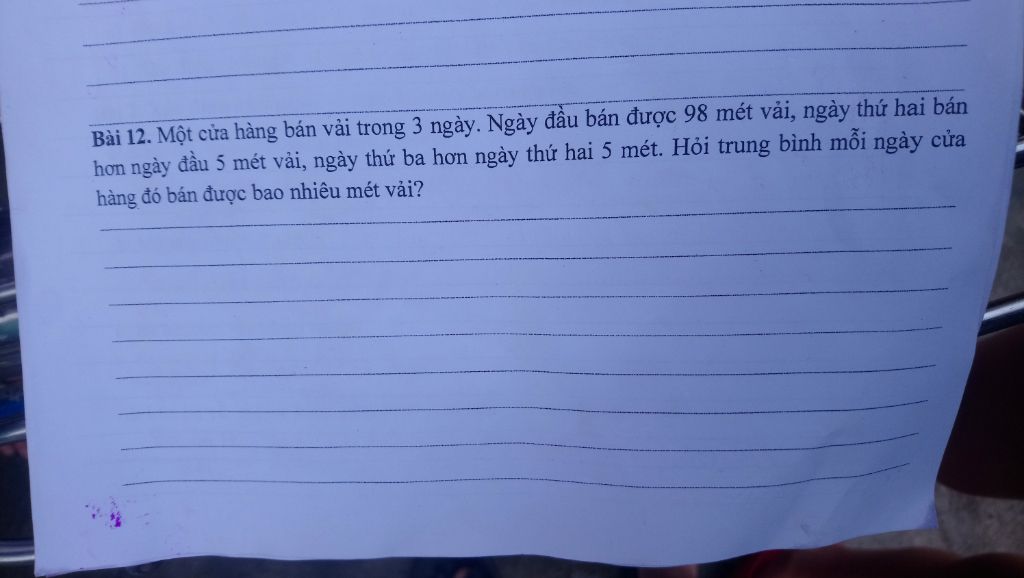 Bài 12. Một cửa hàng bán vải trong 3 ngày. Ngày đầu bán được 98 mét vải, ngày thứ hai bán
hơn ngày đầu 5 mét vải, ngày thứ ba hơn ngày thứ hai 5 mét. Hỏi trung bình mỗi ngày cửa
hàng đó bán được bao nhiêu mét vải?